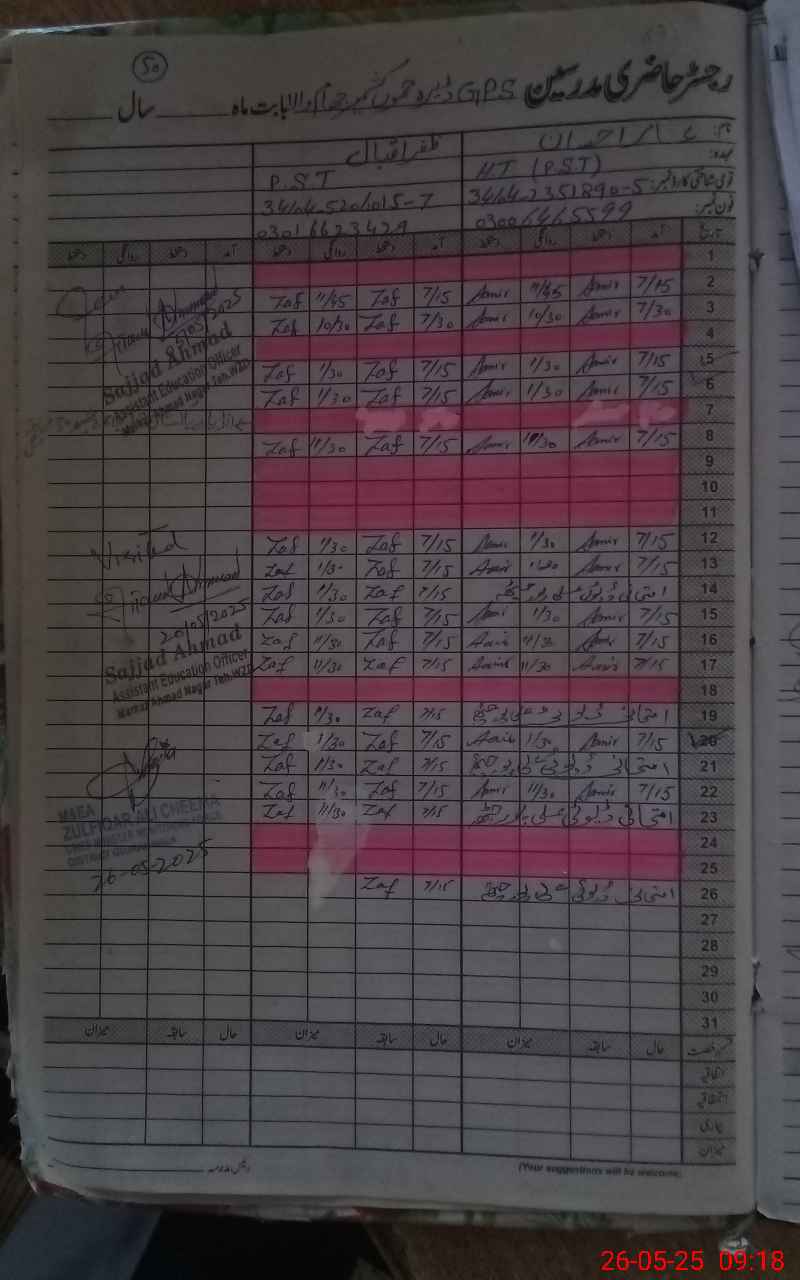 50
رجسٹر حاضری مدرسین GPS ڈیرہ جموں کشمیر چدھڑانوالا بابت ماہ سال
نام: عامر احسان ظفر اقبال
عہدہ: HT (PST) P.S.T
قومی شناختی کارڈ نمبر: 34104-2351890-5 34104-5201015-7
فون نمبر: 03006465599
تاریخ آمد دستخط روانگی دستخط آمد دستخط روانگی دستخط آمد دستخط روانگی دستخط
1
2 7/15 Amir 11/45 Amir 7/15 Zaf 11/45 Zaf
3 7/30 Amir 10/30 Amir 7/30 Zaf 10/30 Zaf
4
5 7/15 Amir 1/30 Amir 7/15 Zaf 1/30 Zaf
6 7/15 Amir 1/30 Amir 7/15 Zaf 1/30 Zaf
7
8 7/15 Amir 11/30 Amir 7/15 Zaf 11/30 Zaf
9
10
11
12 7/15 Amir 1/30 Amir 7/15 Zaf 1/30 Zaf
13 7/15 Amir 1/30 Amir 7/15 Zaf 1/30 Zaf
14 امتحانی ڈیوٹی 7/15 Zaf 1/30 Zaf
15 7/15 Amir 1/30 Amir 7/15 Zaf 1/30 Zaf
16 7/15 Amir 11/30 Amir 7/15 Zaf 11/30 Zaf
17 7/15 Amir 11/30 Amir 7/15 Zaf 11/30 Zaf
18
19 امتحانی ڈیوٹی 7/15 Zaf 1/30 Zaf
20 7/15 Amir 1/30 Amir 7/15 Zaf 1/30 Zaf
21 امتحانی ڈیوٹی 7/15 Zaf 11/30 Zaf
22 7/15 Amir 11/30 Amir 7/15 Zaf 11/30 Zaf
23 امتحانی ڈیوٹی 7/15 Zaf 11/30 Zaf
24
25
26 امتحانی ڈیوٹی 7/15 Zaf
27
28
29
30
31
قسم رخصت حال سابقہ میزان حال سابقہ میزان حال سابقہ میزان
اتفاقیہ
استحقاقیہ
بیماری
میزان
(Your suggestions will be welcome)
رئیس مدرسہ
Sajjad Ahmad
Assistant Education Officer
Markaz Ahmad Nagar Teh.WZD
Visited
20/05/2025
Sajjad Ahmad
Assistant Education Officer
Markaz Ahmad Nagar Teh.WZD
MAEA
ZULFIQAR ALI CHEEMA
CHIEF MINISTER MONITORING FORCE
DISTRICT GUJRANWALA
26-05-2025
26-05-25 09:18